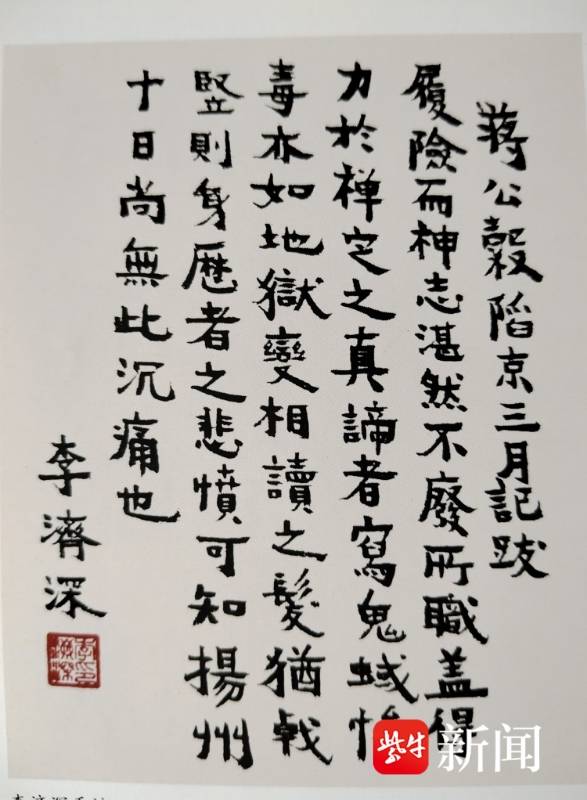 蔣公穀陷京三月記跋
履險而神志湛然不廢所職盖得
力於禅定之真諦者寫鬼蜮
毒亦如地獄變相讀之髮猶戟
竪則身歷者之悲憤可知揚州
十日尚無此沉痛也
李濟深
紫牛新闻